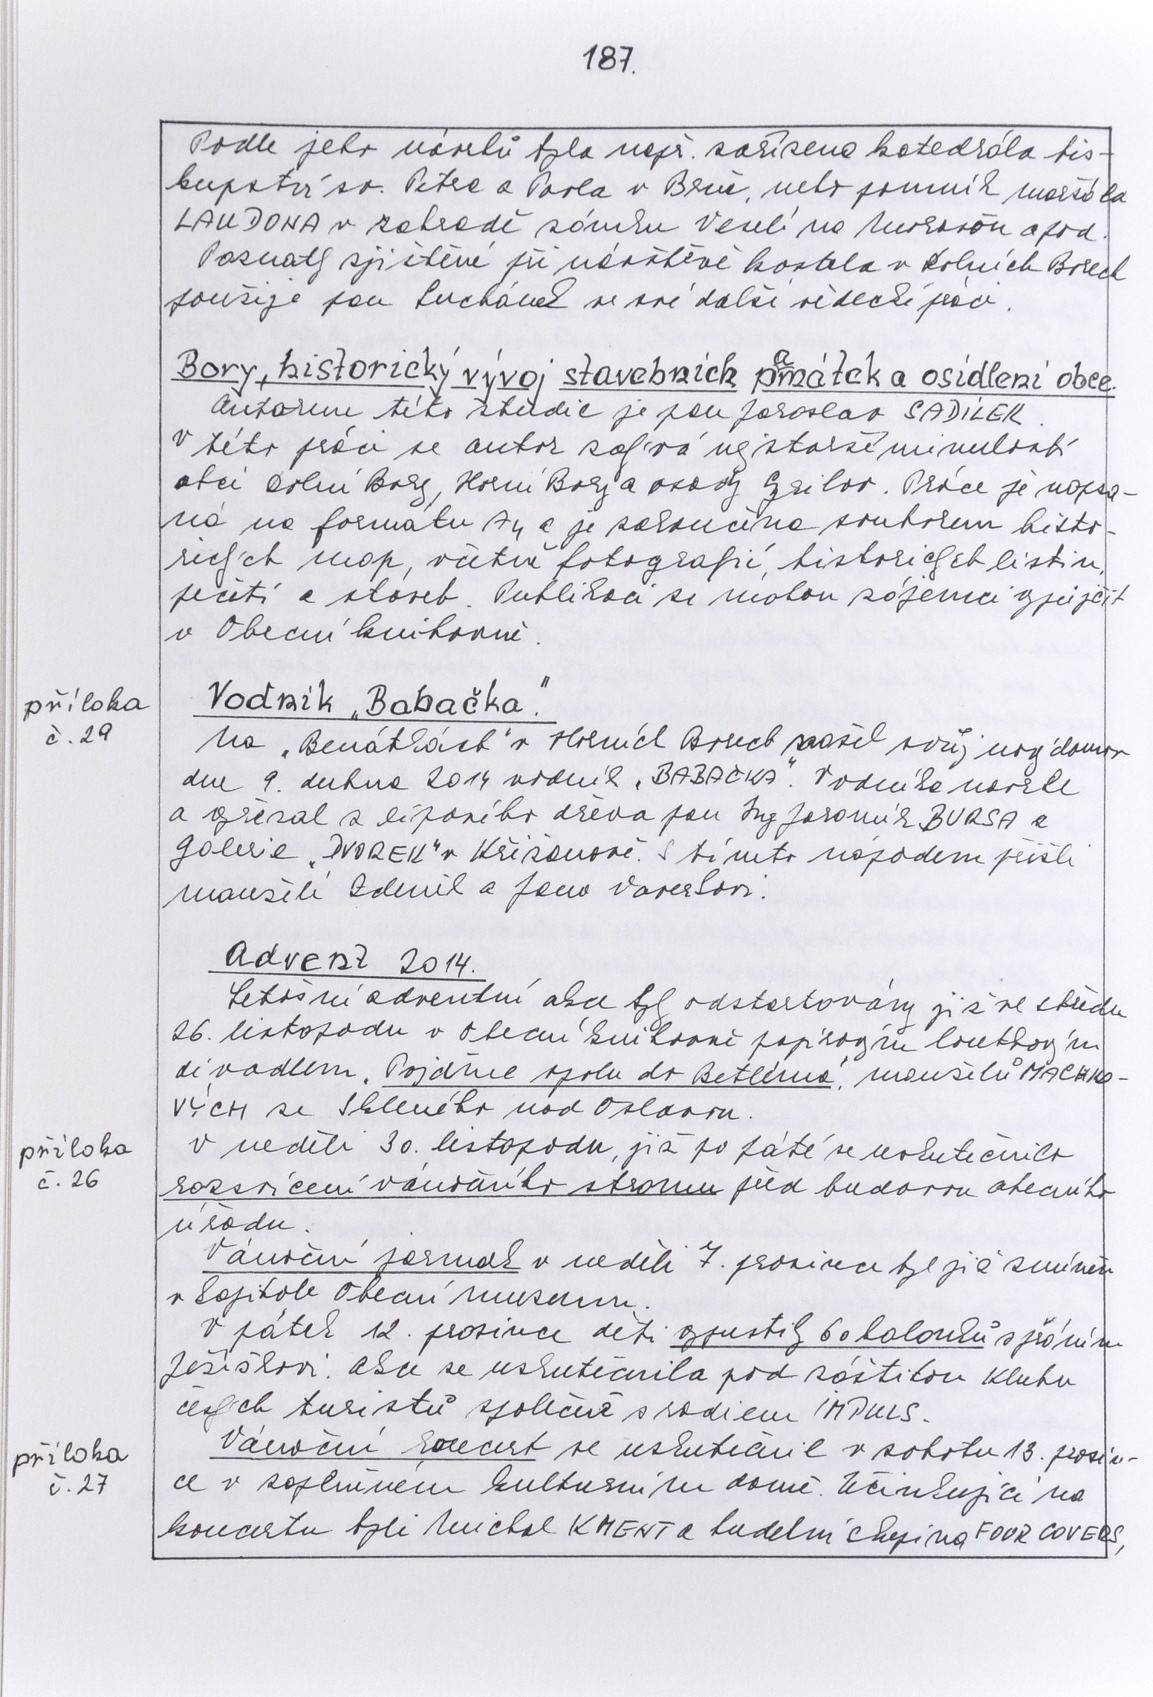 187.
Podle jeho návrhů byla např. zařízena katedrála bis-
kupství sv. Petra a Pavla v Brně, nebo pomník maršála
LAUDONA v zahradě zámku Veselí na Moravou apod.
Poznatky zjištěné při návštěvě kostela v Dolních Borech
použije pan Suchánek ve své další vědecké práci.
Bory, historický vývoj stavebních památek a osídlení obce.
Autorem této studie je pan Jaroslav SADÍLEK.
V této práci se autor zabývá nejstarší minulostí
obcí Dolní Bory, Horní Bory a osady Cyrilov. Práce je napsa-
ná na formátu A4 a je zakončena souborem histo-
rických map, včetně fotografií, historických listin,
pečetí a staveb. Publikaci si mohou zájemci vypůjčit
v Obecní knihovně.
příloha
č. 29
Vodník „Babačka“.
Na „Benátkách“ v Horních Borech našel svůj nový domov
dne 9. dubna 2014 vodník „BABAČKA“. Vodníka navrhl
a vyřezal z lipového dřeva pan Ing Jaromír BURSA z
galerie „DVOREK“ v Křižanově. S tímto nápadem přišli
manželé Zdeněk a Jana Vaverkovi.
Advent 2014.
Letošní adventní akce byly odstartovány již ve středu
26. listopadu v Obecní knihovně papírovým loutkovým
divadlem „Pojďme spolu do Betléma“, manželů MACHKO-
VÝCH ze Skleného nad Oslavou.
příloha
č. 26
V neděli 30. listopadu, již po páté se uskutečnilo
rozsvícení vánočního stromu před budovou obecního
úřadu.
Vánoční jarmark v neděli 7. prosince byl již zmíněn
v kapitole Obecní muzeum.
V pátek 12. prosince děti vypustily 60 balonků s přáním
Ježíškovi. Akce se uskutečnila pod záštitou Klubu
českých turistů společně s radiem IMPULS.
příloha
č. 27
Vánoční koncert se uskutečnil v sobotu 13. prosin-
ce v zaplněném kulturním domě. Účinkující na
koncertu byli Michal KMENT a hudební skupina FOUR COVERS,